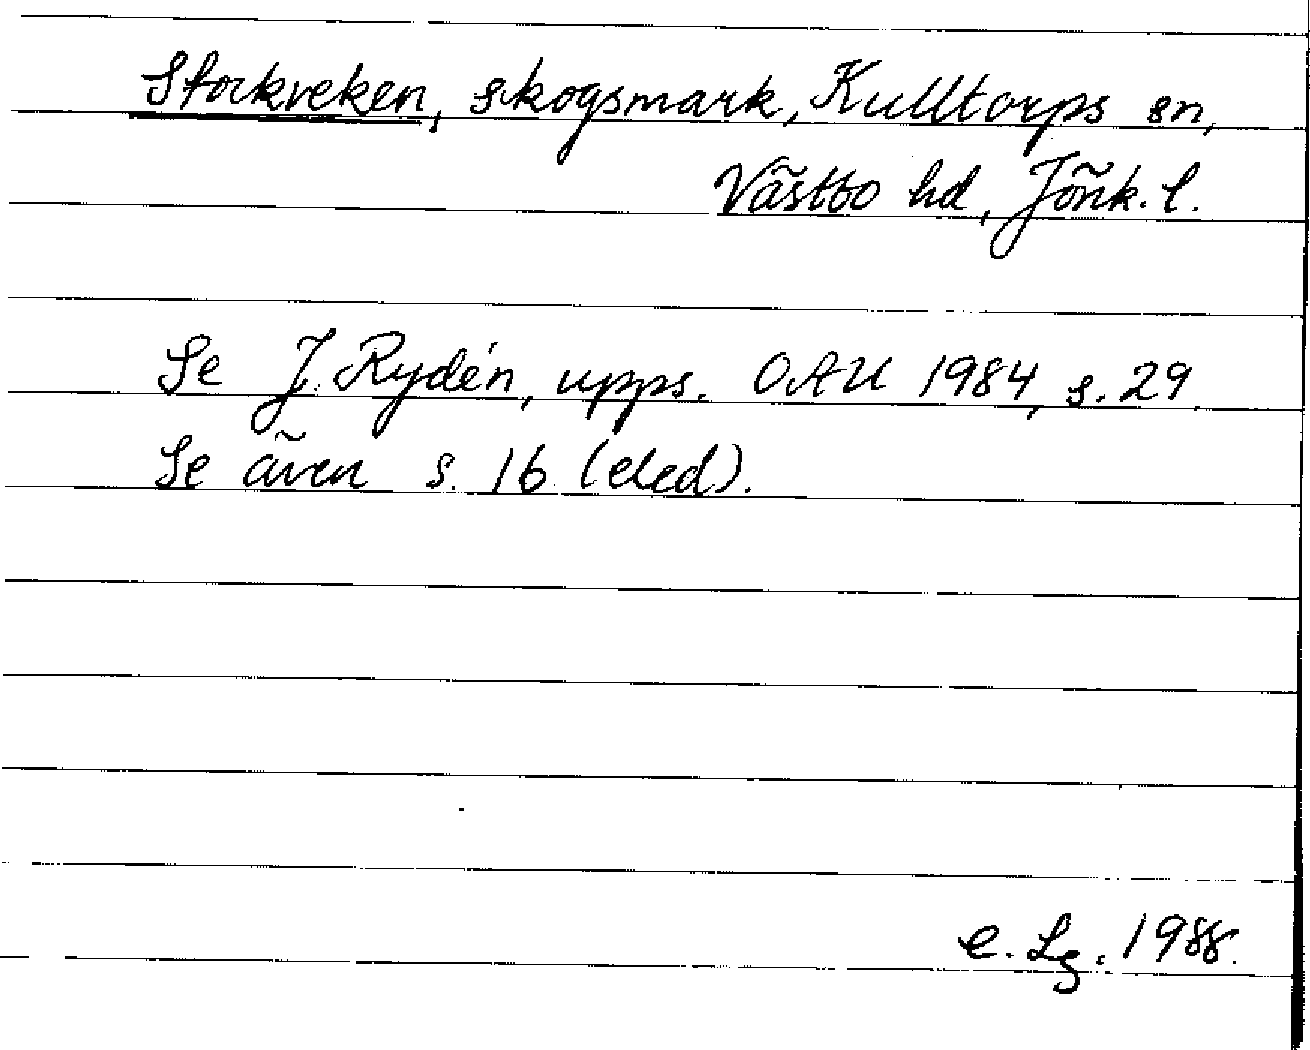 Stockveken, skogsmark, Kulltorps sn,
Västbo hd, Jönk. l.
Se J. Rydén, upps. OAU 1984, s. 29.
Se även s. 16 (eled).
e. Lg. 1988.